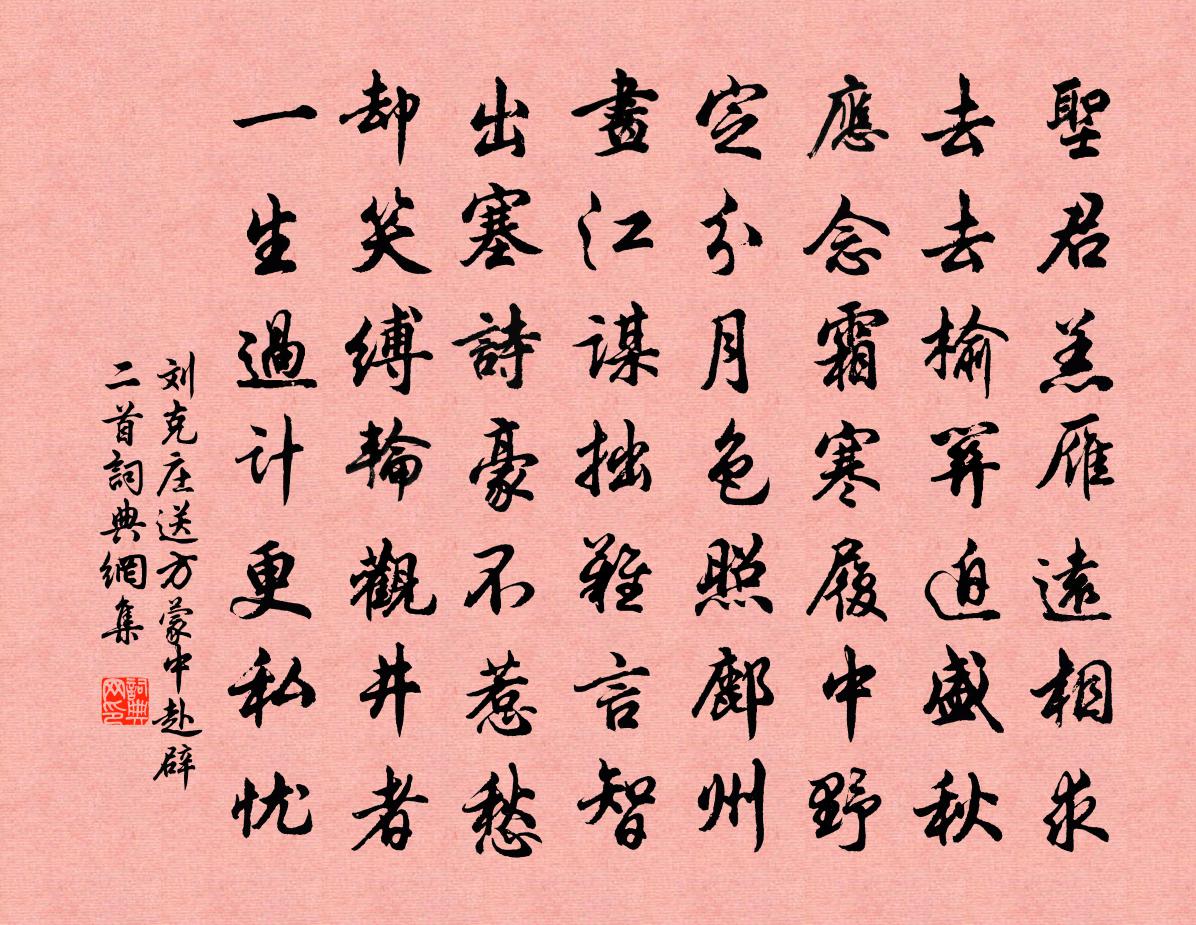 聖君羔雁遠相求
去去榆關迫盛秋
應念霜寒履中野
定分月色照鄜州
畫江謀拙難言智
出塞詩豪不惹愁
却笑縛輪觀井者
一生過计更私忧
刘克庄送方蒙中赴辟
二首詞典網集
詞典网印